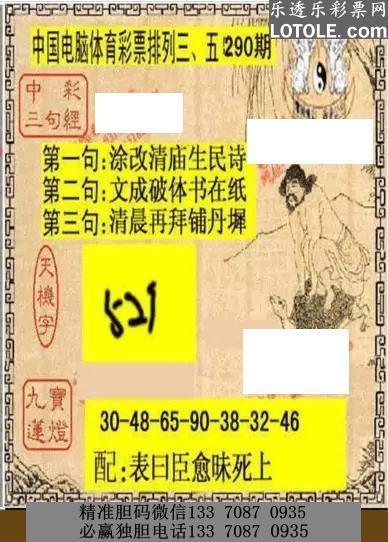 乐透乐彩票网
LOTOLE.COM
中国电脑体育彩票排列三、五290期
中彩
三句經
第一句:涂改清庙生民诗
第二句:文成破体书在纸
第三句:清晨再拜铺丹墀
天機字
九寶
蓮燈
30-48-65-90-38-32-46
配:表曰臣愈昧死上
精准胆码微信133 7087 0935
必赢独胆电话133 7087 0935